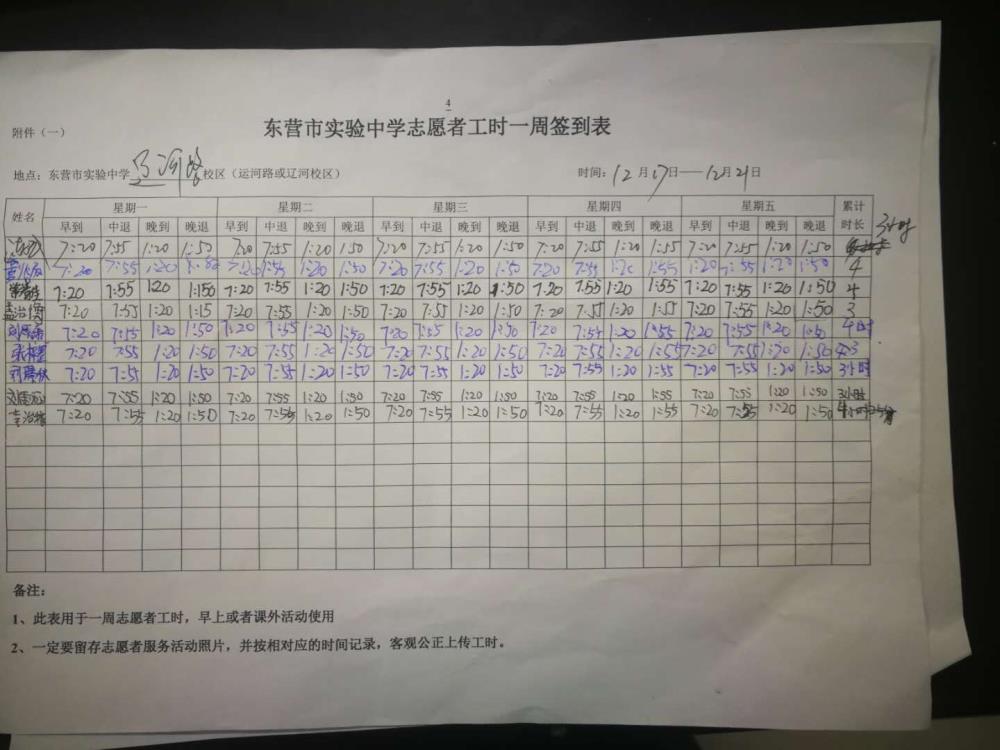 4
附件（一）
东营市实验中学志愿者工时一周签到表
地点：东营市实验中学 校区（运河路或辽河校区） 时间：12月17日——12月21日
姓名 星期一 星期二 星期三 星期四 星期五 累计时长
早到 中退 晚到 晚退 早到 中退 晚到 晚退 早到 中退 晚到 晚退 早到 中退 晚到 晚退 早到 中退 晚到 晚退
7:20 7:55 1:20 1:50 7:20 7:55 1:20 1:50 7:20 7:55 1:20 1:50 7:20 7:55 1:20 1:55 7:20 7:55 1:20 1:50 3小时
7:20 7:55 1:20 7:20 7:55 1:20 1:50 7:20 7:55 1:20 1:50 7:20 7:55 1:20 1:55 1:20 7:55 1:20 1:50 4
7:20 7:55 120 1:150 7:20 7:55 1:20 1:50 7:20 7:55 1:20 1:50 7:20 7:55 1:20 1:55 7:20 7:55 1:20 1:50 4
孟治 7:20 7:55 1:20 1:15 7:20 7:55 1:20 1:50 7:20 7:55 1:20 1:50 7:20 7:55 1:20 1:55 7:20 7:55 1:20 1:50 3
7:20 7:15 1:20 1:50 7:20 7:55 1:20 1:50 7:20 7:55 1:20 1:50 7:20 7:55 1:20 1:55 7:20 7:55 1:20 1:50 4时
7:20 7:55 1:20 1:50 7:20 7:55 1:20 1:50 7:20 7:55 1:20 1:50 7:20 7:55 1:20 1:55 7:20 7:55 1:20 1:50 3
7:20 7:55 1:20 1:50 7:20 7:55 1:20 1:50 7:20 7:55 1:20 1:50 7:20 7:55 1:20 1:55 7:20 7:55 1:20 1:50 3小时
7:20 7:55 1:20 1:50 7:20 7:55 1:20 1:50 7:20 7:55 1:20 1:50 7:20 7:55 1:20 1:55 7:20 7:55 1:20 1:50 3小时
7:20 7:55 1:20 1:50 7:20 7:55 1:20 1:50 7:20 7:55 1:20 1:50 7:20 7:55 1:20 1:55 7:20 7:55 1:20 1:50 4小时
备注：
1、此表用于一周志愿者工时，早上或者课外活动使用
2、一定要留存志愿者服务活动照片，并按相对应的时间记录，客观公正上传工时。